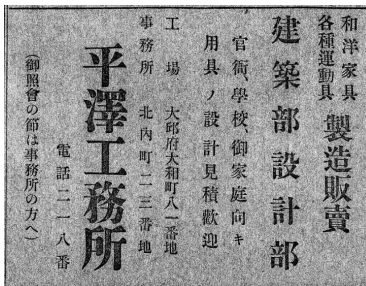 和洋家具
各種運動具
製造販賣
建築部設計部
官衙、學校、御家庭向キ
用具ノ設計見積歡迎
工場 大邱府大和町八一番地
事務所 北內町二三番地
平澤工務所
電話二一八番
(御照會の節は事務所の方へ)